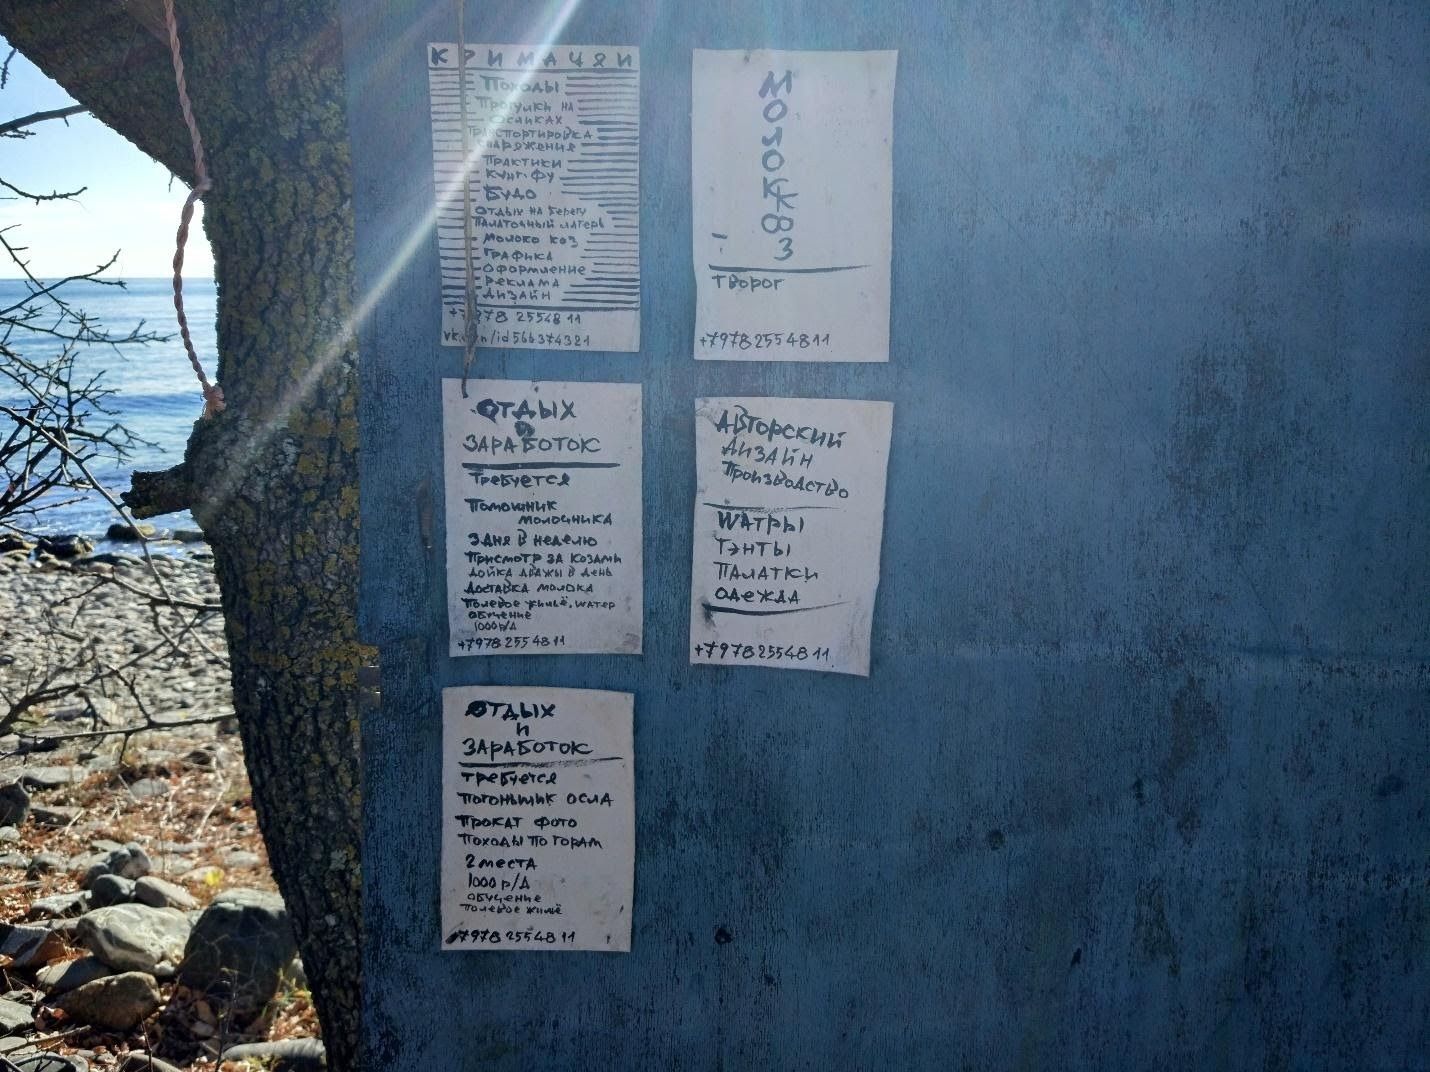 КРИМАЧЯИ
Походы
Прогулки на
осликах
Транспортировка
снаряжения
Практики
Кунг-фу
Будо
Отдых на берегу
Палаточный лагерь
Молоко коз
Графика
Оформление
Реклама
Дизайн
+7978 2554811
vk.com/id566374321
МОЛОКО
КОЗ
творог
+7978 2554811
Отдых
и
заработок
Требуется
Помошник
молочника
3 дня в неделю
Присмотр за козами
Дойка дважы в день
Доставка молока
Полевое жильё, шатер
обучение
1000 р/д
+7978 2554811
Авторский
дизайн
Производство
Шатры
Тэнты
Палатки
Одежда
+7978 2554811
Отдых
и
заработок
Требуется
Погоньшик осла
Прокат фото
Походы по горам
2 места
1000 р/д
обучение
Полевое жильё
+7978 2554811